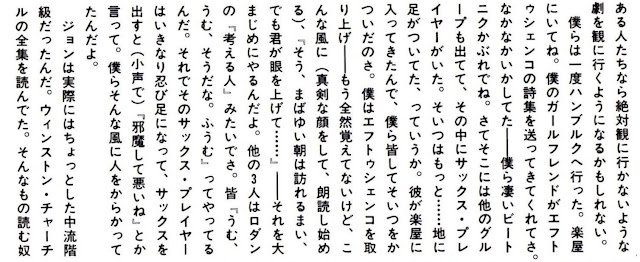 ある人たちなら絶対観に行かないような
劇を観に行くようになるかもしれない。
僕らは一度ハンブルクへ行った。楽屋
にいてね。僕のガールフレンドがエフト
ゥシェンコの詩集を送ってきてくれてさ。
なかなかいかしてた──僕ら凄いビート
ニクかぶれでね。さてそこには他のグル
ープも出てて、その中にサックス・プレ
イヤーがいた。そいつはもっと……地に
足がついてた、っていうか。彼が楽屋に
入ってきたんで、僕ら皆してそいつをか
ついだのさ。僕はエフトゥシェンコを取
り上げ──もう全然覚えてないけど、こ
んな風に（真剣な顔をして、朗読し始め
る）、『そう、まばゆい朝は訪れるまい、
でも君が眼を上げて……』──それを大
まじめにやるんだよ。他の3人はロダン
の『考える人』みたいでさ。皆『うむ、
うむ、そうだな。ふうむ』ってやってる
んだ。それでそのサックス・プレイヤー
はいきなり忍び足になって、サックスを
出すと（小声で）『邪魔して悪いね』とか
言って。僕らそんな風に人をからかって
たんだよ。
ジョンは実際にはちょっとした中流階
級だったんだ。ウィンストン・チャーチ
ルの全集を読んでた。そんなもの読む奴